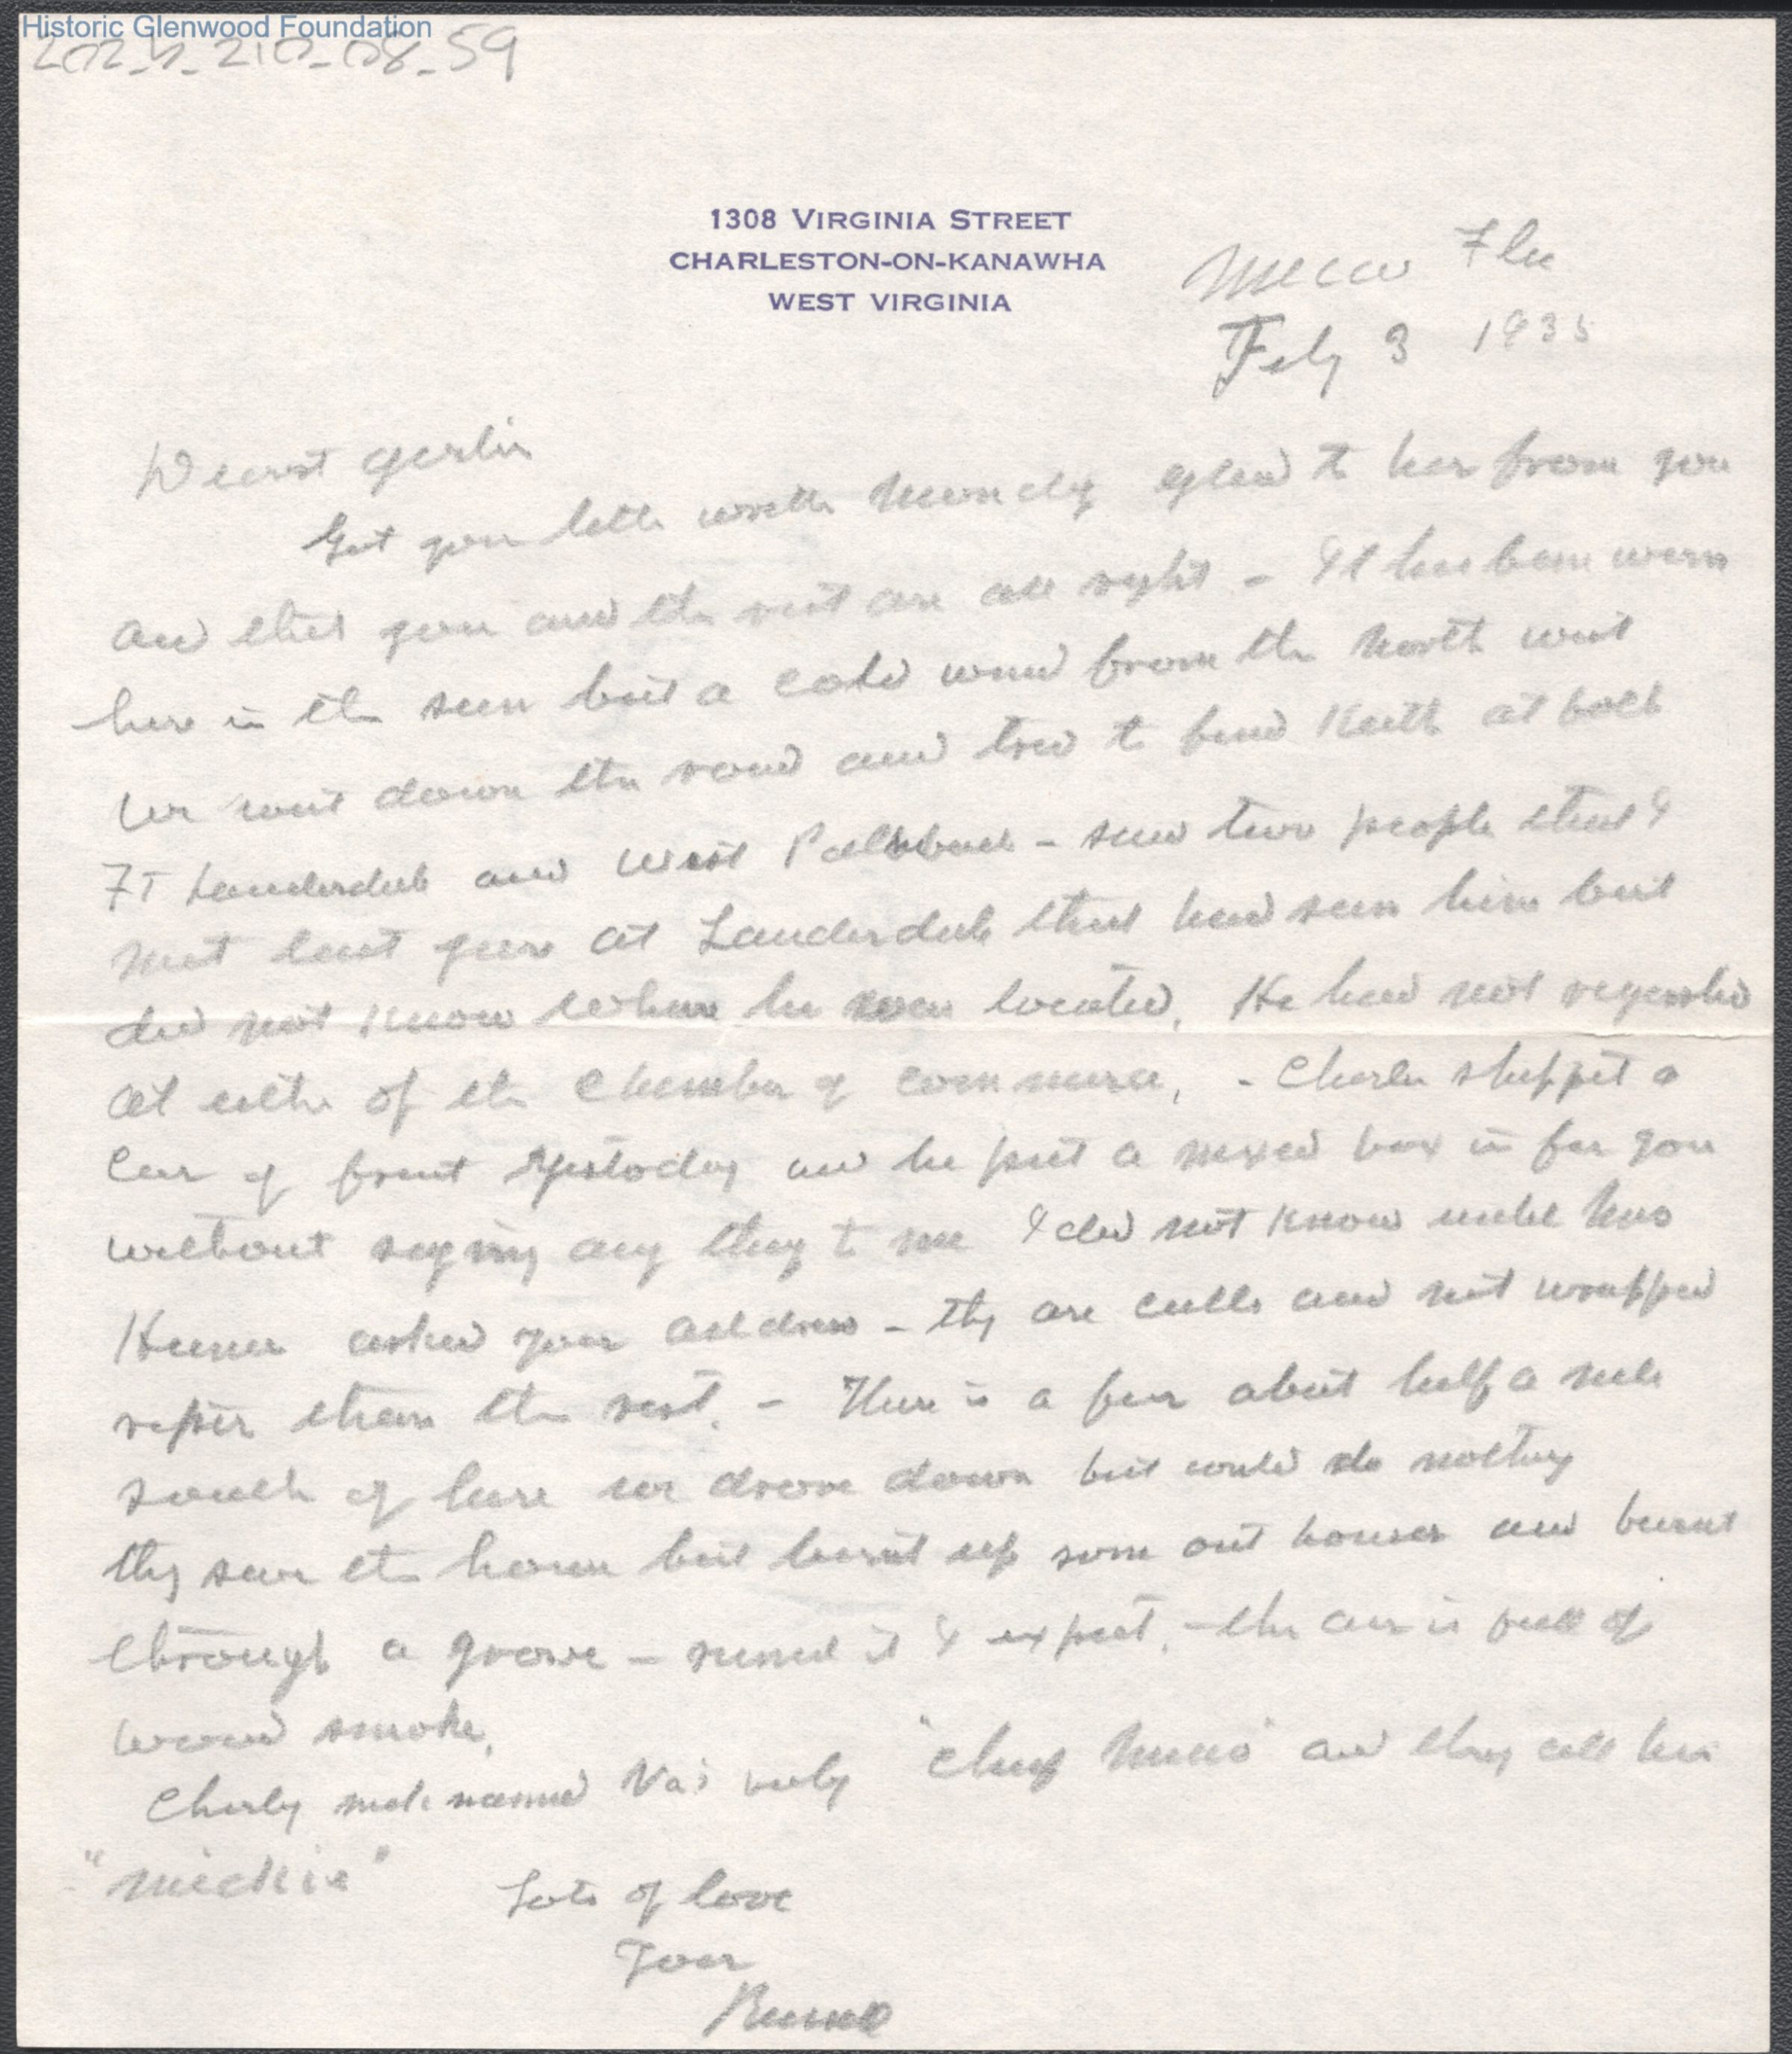 Historic Glenwood Foundation
2024_210_08_59
1308 VIRGINIA STREET
CHARLESTON-ON-KANAWHA
WEST VIRGINIA
Micco Fla
Feby 3 1935
Dearest
Got your letter glad to her from you
and that you and the rest are all right - It has been warm
here in the sun but a cold wind from the north west
We went down the road and tried to find Keith at both
FT Lauderdale and West - saw two people that I
met last year at Lauderdale that had seen him but
did not know where he was located. He had not
at either of the Chamber of commerce, - Charlie shippet a
Car of fruit yestoday and he put a mixed box in for you
without saying any thing to me I did not know until
asked your address - they are culls and not wrapped
riper than the rest. - There is a fire about half a mile
south of here we drove down but could do nothing
they save the house but burnt up some out houses and burnt
through a grove - ruined it I expect. - the air is full of
wood smoke.
Charly nick named baby "Chief " and they call him
"Mickie"
Lots of love
Your